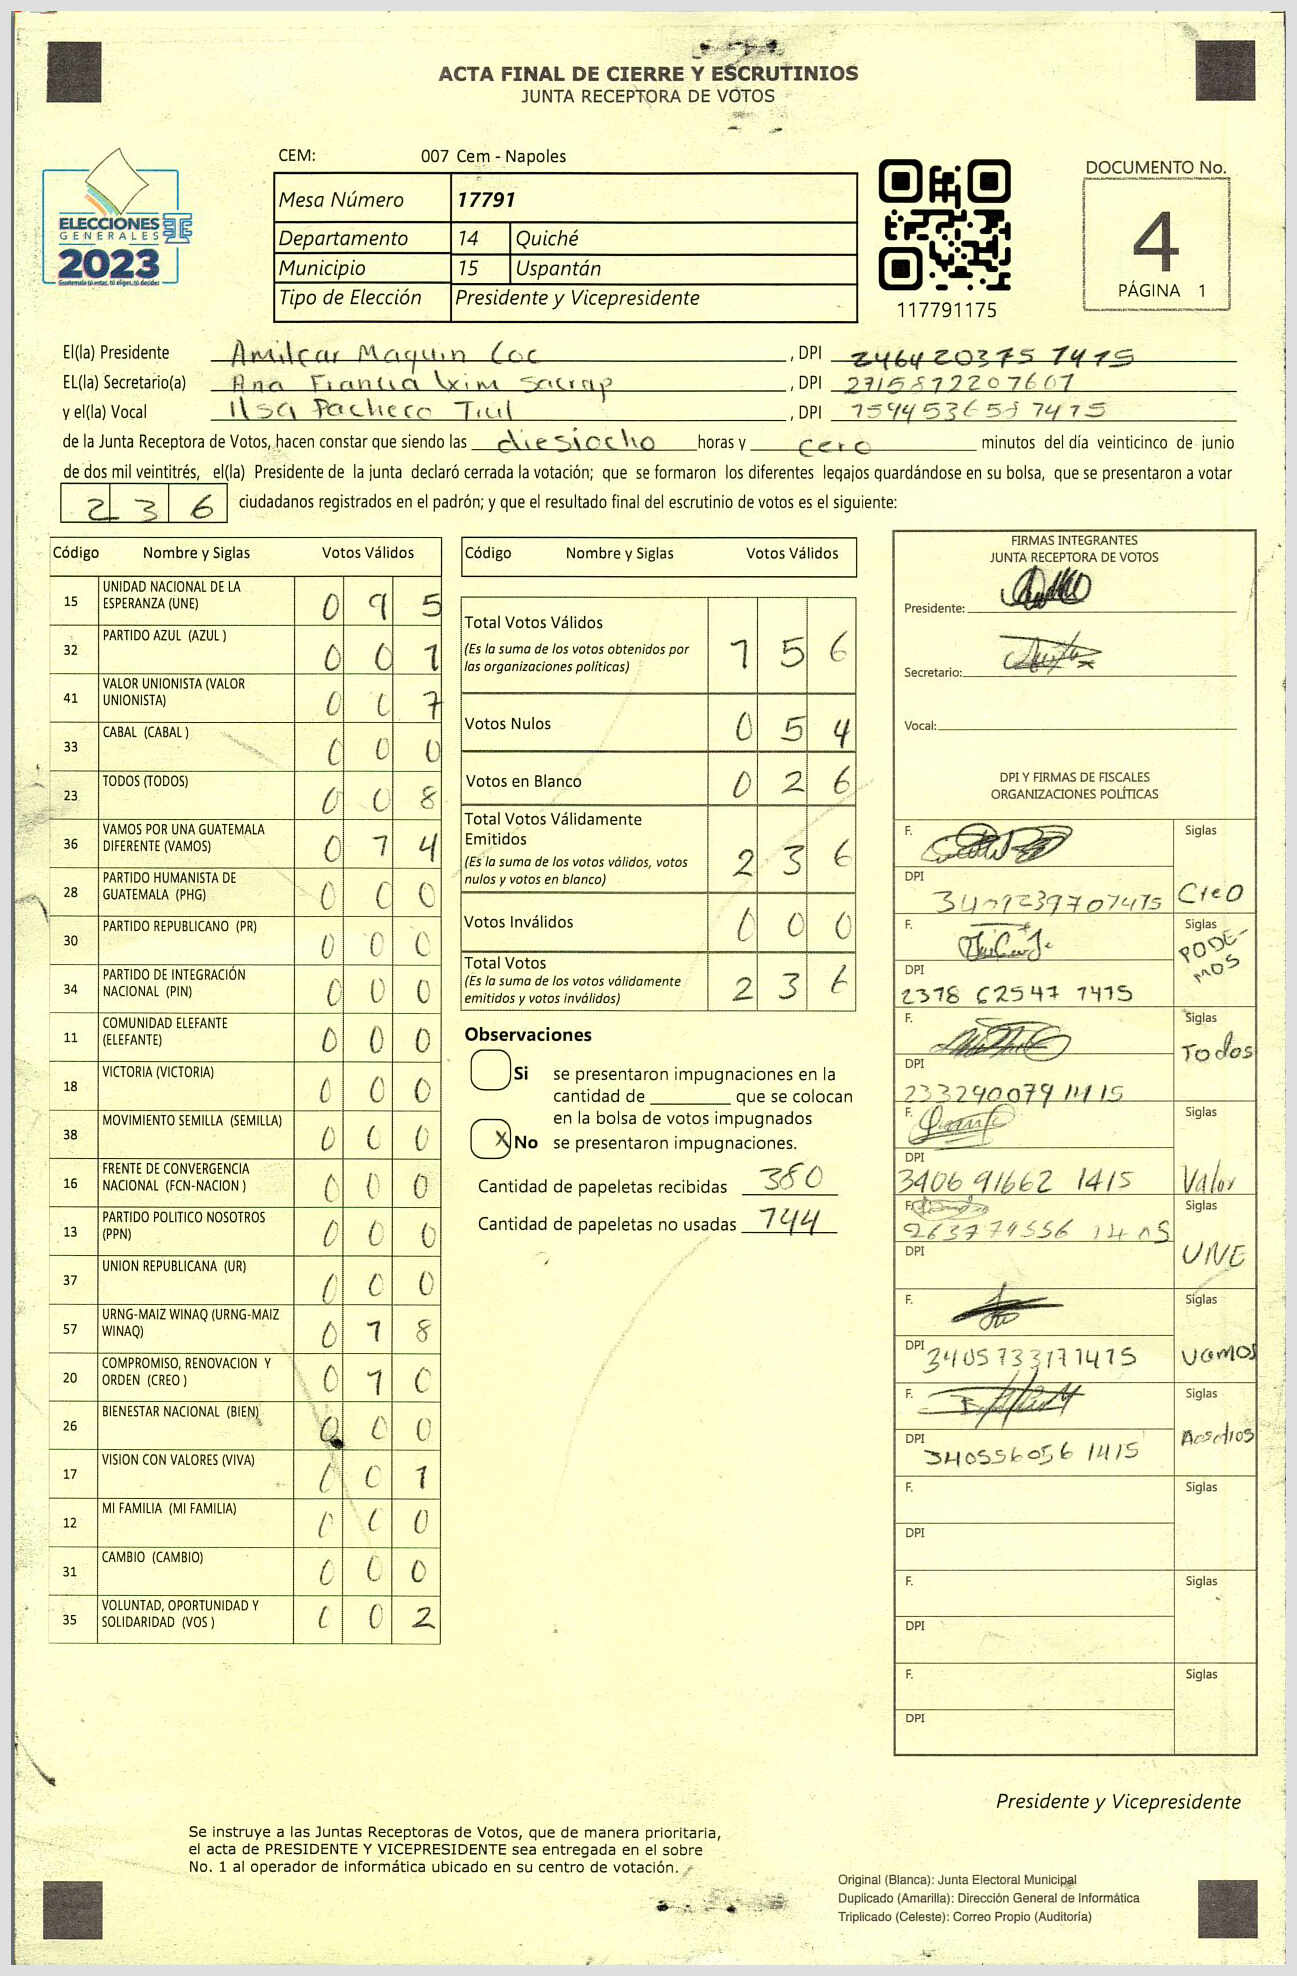 ACTA FINAL DE CIERRE Y ESCRUTINIOS
JUNTA RECEPTORA DE VOTOS
CEM: 007 Cem - Napoles
ELECCIONES
GENERALES
2023
Mesa Número 17791
Departamento 14 Quiché
Municipio 15 Uspantán
Tipo de Elección Presidente y Vicepresidente
117791175
DOCUMENTO No.
4
PÁGINA 1
El(la) Presidente Amilcar Maquin Coc, DPI 2464 20375 1415
EL(la) Secretario(a) Ana Francia Ixim Sacrap, DPI 2715872207607
y el(la) Vocal Ilsa Pacheco Tiul, DPI 1594536587415
de la Junta Receptora de Votos, hacen constar que siendo las diesiocho horas y cero minutos del día veinticinco de junio
de dos mil veintitrés, el(la) Presidente de la junta declaró cerrada la votación; que se formaron los diferentes legajos guardándose en su bolsa, que se presentaron a votar
236 ciudadanos registrados en el padrón; y que el resultado final del escrutinio de votos es el siguiente:
Código Nombre y Siglas Votos Válidos
15 UNIDAD NACIONAL DE LA ESPERANZA (UNE) 0 9 5
32 PARTIDO AZUL (AZUL ) 0 0 1
41 VALOR UNIONISTA (VALOR UNIONISTA) 0 0 7
33 CABAL (CABAL ) 0 0 0
23 TODOS (TODOS) 0 0 8
36 VAMOS POR UNA GUATEMALA DIFERENTE (VAMOS) 0 1 4
28 PARTIDO HUMANISTA DE GUATEMALA (PHG) 0 0 0
30 PARTIDO REPUBLICANO (PR) 0 0 0
34 PARTIDO DE INTEGRACIÓN NACIONAL (PIN) 0 0 0
11 COMUNIDAD ELEFANTE (ELEFANTE) 0 0 0
18 VICTORIA (VICTORIA) 0 0 0
38 MOVIMIENTO SEMILLA (SEMILLA) 0 0 0
16 FRENTE DE CONVERGENCIA NACIONAL (FCN-NACION ) 0 0 0
13 PARTIDO POLITICO NOSOTROS (PPN) 0 0 0
37 UNION REPUBLICANA (UR) 0 0 0
57 URNG-MAIZ WINAQ (URNG-MAIZ WINAQ) 0 1 8
20 COMPROMISO, RENOVACION Y ORDEN (CREO ) 0 1 0
26 BIENESTAR NACIONAL (BIEN) 0 0 0
17 VISION CON VALORES (VIVA) 0 0 1
12 MI FAMILIA (MI FAMILIA) 0 0 0
31 CAMBIO (CAMBIO) 0 0 0
35 VOLUNTAD, OPORTUNIDAD Y SOLIDARIDAD (VOS ) 0 0 2
Código Nombre y Siglas Votos Válidos
Total Votos Válidos 1 5 6
(Es la suma de los votos obtenidos por
las organizaciones políticas)
Votos Nulos 0 5 4
Votos en Blanco 0 2 6
Total Votos Válidamente
Emitidos 2 3 6
(Es la suma de los votos válidos, votos
nulos y votos en blanco)
Votos Inválidos 0 0 0
Total Votos 2 3 6
(Es la suma de los votos válidamente
emitidos y votos inválidos)
Observaciones
Si se presentaron impugnaciones en la
cantidad de ________ que se colocan
en la bolsa de votos impugnados
X No se presentaron impugnaciones.
Cantidad de papeletas recibidas 380
Cantidad de papeletas no usadas 144
FIRMAS INTEGRANTES
JUNTA RECEPTORA DE VOTOS
Presidente:
Secretario:
Vocal:
DPI Y FIRMAS DE FISCALES
ORGANIZACIONES POLÍTICAS
F. Siglas
DPI Creo
F. Siglas
PODE-
MOS
DPI 2378 62547 1415
F. Siglas
Todos
DPI 233290079 1415
F. Siglas
DPI
3406 91662 1415 Valor
F. Siglas
263779556 1415
DPI UNE
F. Siglas
DPI 3405733171415 Vamos
F. Siglas
DPI 340556056 1415
F. Siglas
DPI
F. Siglas
DPI
F. Siglas
DPI
Presidente y Vicepresidente
Se instruye a las Juntas Receptoras de Votos, que de manera prioritaria,
el acta de PRESIDENTE Y VICEPRESIDENTE sea entregada en el sobre
No. 1 al operador de informática ubicado en su centro de votación.
Original (Blanca): Junta Electoral Municipal
Duplicado (Amarilla): Dirección General de Informática
Triplicado (Celeste): Correo Propio (Auditoría)